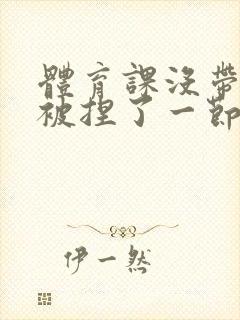 體育課沒帶
被捏了一節
伊一然